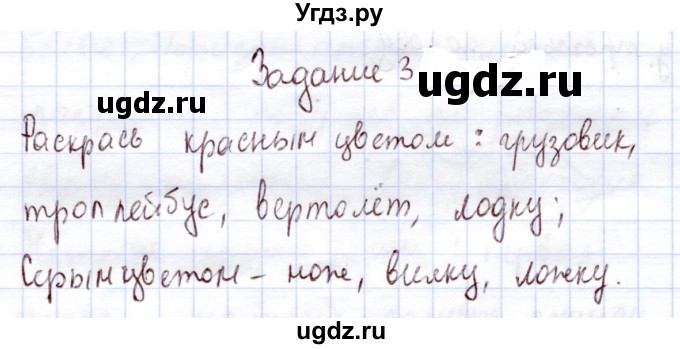 Угдз.ру
Задание 3
ugdz.ru ugdz.ru
Раскрась красным цветом: грузовик,
троллейбус, вертолёт, лодку;
ugdz.ru
Серым цветом - нож, вилку, ложку.
ugdz.ru